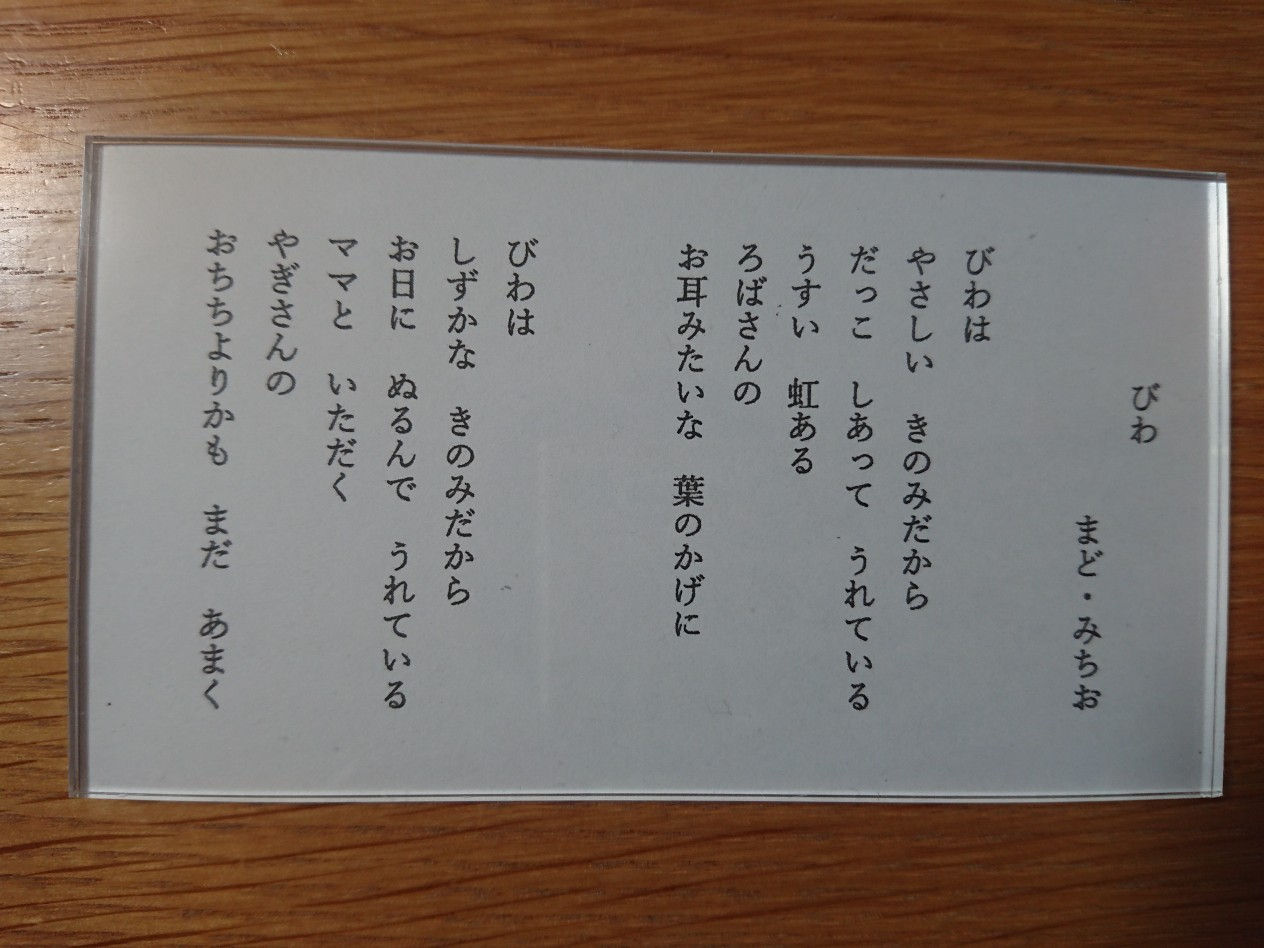 びわ
まど・みちお
びわは
やさしい　きのみだから
だっこ　しあって　うれている
うすい　虹ある
ろばさんの
お耳みたいな　葉のかげに
びわは
しずかな　きのみだから
お日に　ぬるんで　うれている
ママと　いただく
やぎさんの
おちちよりかも　まだ　あまく